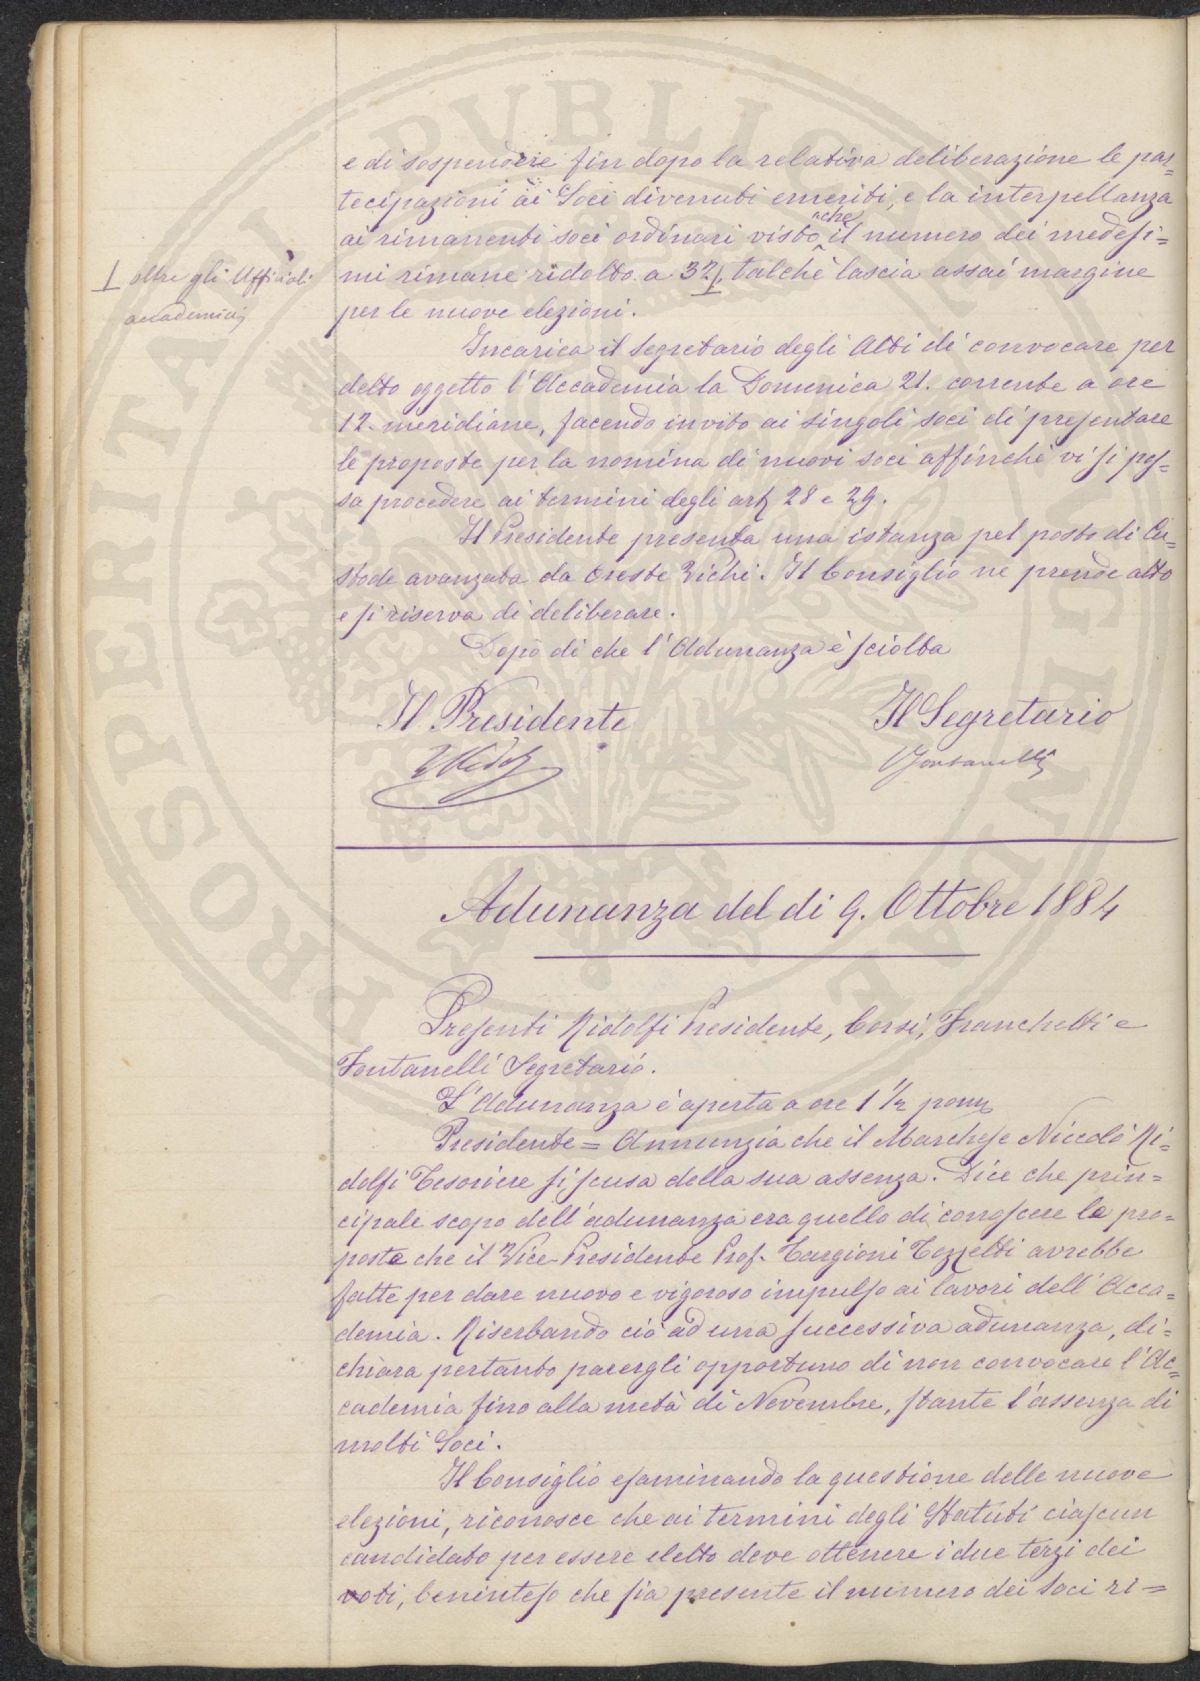 e di sospendere fin dopo la relativa deliberazione le par=
tecipazioni ai Soci divenuti emeriti, e la interpellanza
ai rimanenti soci ordinari visto che il numero dei medesi=
mi rimane ridotto a 32, talchè lascia assai margine
per le nuove elezioni.
oltre gli Ufficiali
accademici
Incarica il Segretario degli Atti di convocare per
detto oggetto l'Accademia la Domenica 21. corrente a ore
12. meridiane, facendo invito ai singoli soci di presentare
le proposte per la nomina di nuovi soci affinchè vi si pos=
sa procedere ai termini degli art 28 e 29.
Il Presidente presenta una istanza pel posto di Cu=
stode avanzata da Oreste Vichi. Il Consiglio ne prende atto
e si riserva di deliberare.
Dopo di che l'Adunanza è sciolta
Il Presidente
Il Segretario
Ridolfi
Fontanelli
Adunanza del di 9. Ottobre 1884
Presenti Ridolfi Presidente, Corsi, Franchetti e
Fontanelli Segretario.
L'Adunanza è aperta a ore 1 1/2 pom
Presidente = Annunzia che il Marchese Niccolò Ri=
dolfi Tesoriere si scusa della sua assenza. Dice che prin=
cipale scopo dell'adunanza era quello di conoscere le pro=
poste che il Vice-Presidente Prof. Targioni Tozzetti avrebbe
fatte per dare nuovo e vigoroso impulso ai lavori dell'Acca=
demia. Riserbando ciò ad una successiva adunanza, di=
chiara pertanto parergli opportuno di non convocare l'Ac=
cademia fino alla metà di Novembre, stante l'assenza di
molti Soci.
Il Consiglio esaminando la questione delle nuove
elezioni, riconosce che ai termini degli Statuti ciascun
candidato per essere eletto deve ottenere i due terzi dei
voti, beninteso che sia presente il numero dei soci ri=
PROSPERITATI PUBLICAE AUGENDAE